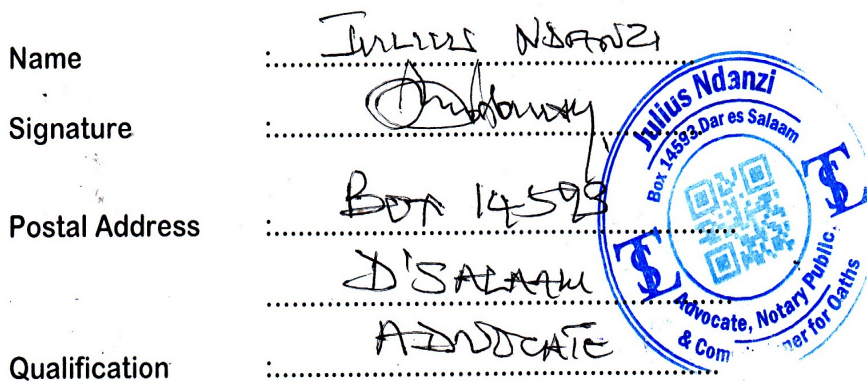 Name : JULIUS NDANZI
Signature :
Postal Address : BOX 14593
D'SALAAM
Qualification : ADVOCATE
Julius Ndanzi
Box 14593, Dar es Salaam
TLS
TLS
Advocate, Notary Public,
& Com ner for Oaths